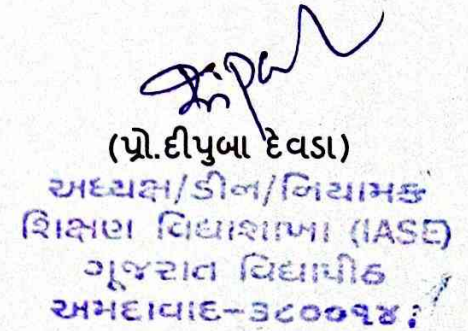 (પ્રો.દીપુબા દેવડા)
અધ્યક્ષ/ડીન/નિયામક
શિક્ષણ વિદ્યાશાખા (IASE)
ગૂજરાત વિદ્યાપીઠ
અમદાવાદ-૩૮૦૦૧૪.